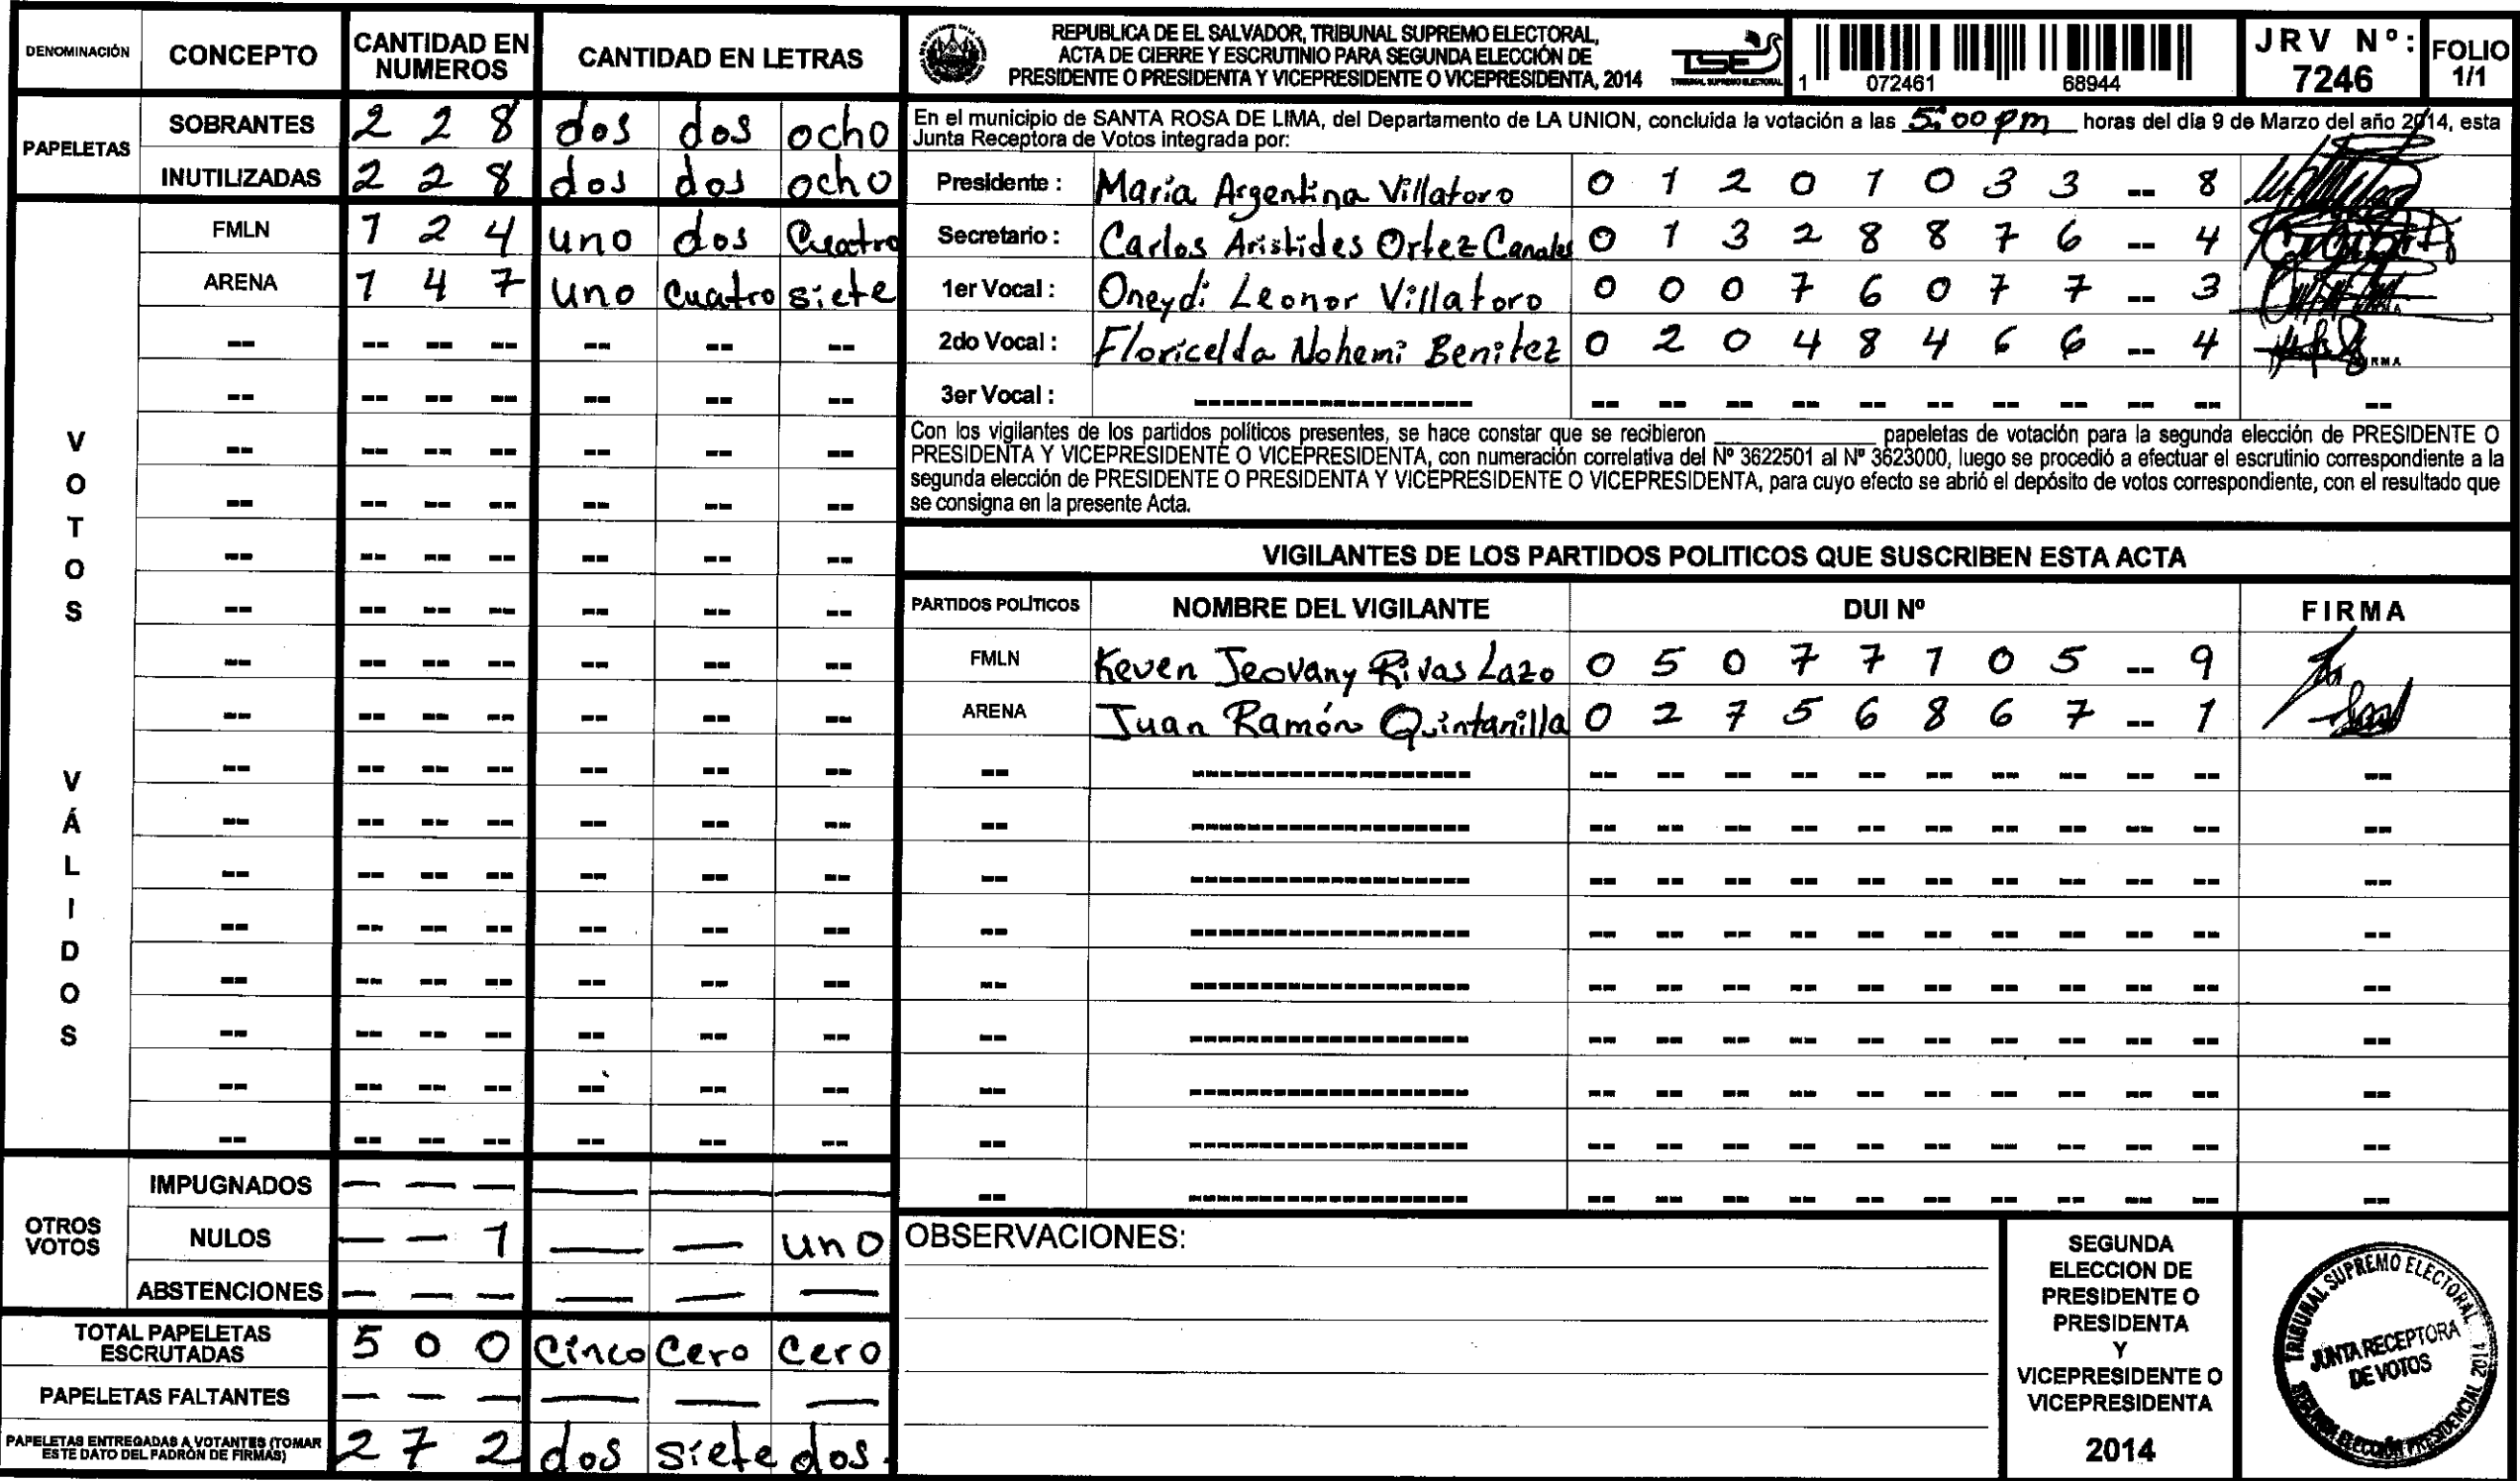 DENOMINACIÓN CONCEPTO CANTIDAD EN NUMEROS CANTIDAD EN LETRAS
PAPELETAS
SOBRANTES 2 2 8 dos dos ocho
INUTILIZADAS 2 2 8 dos dos ocho
VOTOS VÁLIDOS
FMLN 1 2 4 uno dos Cuatro
ARENA 1 4 7 uno cuatro siete
OTROS VOTOS
IMPUGNADOS — — — — — —
NULOS — — 1 — — uno
ABSTENCIONES — — — — — —
TOTAL PAPELETAS ESCRUTADAS 5 0 0 Cinco Cero Cero
PAPELETAS FALTANTES — — — — — —
PAPELETAS ENTREGADAS A VOTANTES (TOMAR ESTE DATO DEL PADRÓN DE FIRMAS) 2 7 2 dos siete dos.
REPUBLICA DE EL SALVADOR, TRIBUNAL SUPREMO ELECTORAL,
ACTA DE CIERRE Y ESCRUTINIO PARA SEGUNDA ELECCIÓN DE
PRESIDENTE O PRESIDENTA Y VICEPRESIDENTE O VICEPRESIDENTA, 2014
TSE
TRIBUNAL SUPREMO ELECTORAL
1 072461 68944
JRV Nº: 7246
FOLIO 1/1
En el municipio de SANTA ROSA DE LIMA, del Departamento de LA UNION, concluida la votación a las 5:00 pm horas del día 9 de Marzo del año 2014, esta
Junta Receptora de Votos integrada por:
Presidente : Maria Argentina Villatoro 0 1 2 0 1 0 3 3 -- 8
Secretario : Carlos Aristides Ortez Canales 0 1 3 2 8 8 7 6 -- 4
1er Vocal : Oneydi Leonor Villatoro 0 0 0 7 6 0 7 7 -- 3
2do Vocal : Floricelda Nohemi Benitez 0 2 0 4 8 4 6 6 -- 4
3er Vocal :
Con los vigilantes de los partidos políticos presentes, se hace constar que se recibieron ____________ papeletas de votación para la segunda elección de PRESIDENTE O
PRESIDENTA Y VICEPRESIDENTE O VICEPRESIDENTA, con numeración correlativa del Nº 3622501 al Nº 3623000, luego se procedió a efectuar el escrutinio correspondiente a la
segunda elección de PRESIDENTE O PRESIDENTA Y VICEPRESIDENTE O VICEPRESIDENTA, para cuyo efecto se abrió el depósito de votos correspondiente, con el resultado que
se consigna en la presente Acta.
VIGILANTES DE LOS PARTIDOS POLITICOS QUE SUSCRIBEN ESTA ACTA
PARTIDOS POLÍTICOS NOMBRE DEL VIGILANTE DUI Nº FIRMA
FMLN Keven Jeovany Rivas Lazo 0 5 0 7 7 1 0 5 -- 9
ARENA Juan Ramón Quintanilla 0 2 7 5 6 8 6 7 -- 1
OBSERVACIONES:
SEGUNDA
ELECCION DE
PRESIDENTE O
PRESIDENTA
Y
VICEPRESIDENTE O
VICEPRESIDENTA
2014
TRIBUNAL SUPREMO ELECTORAL
JUNTA RECEPTORA
DE VOTOS
SEGUNDA ELECCIÓN PRESIDENCIAL 2014